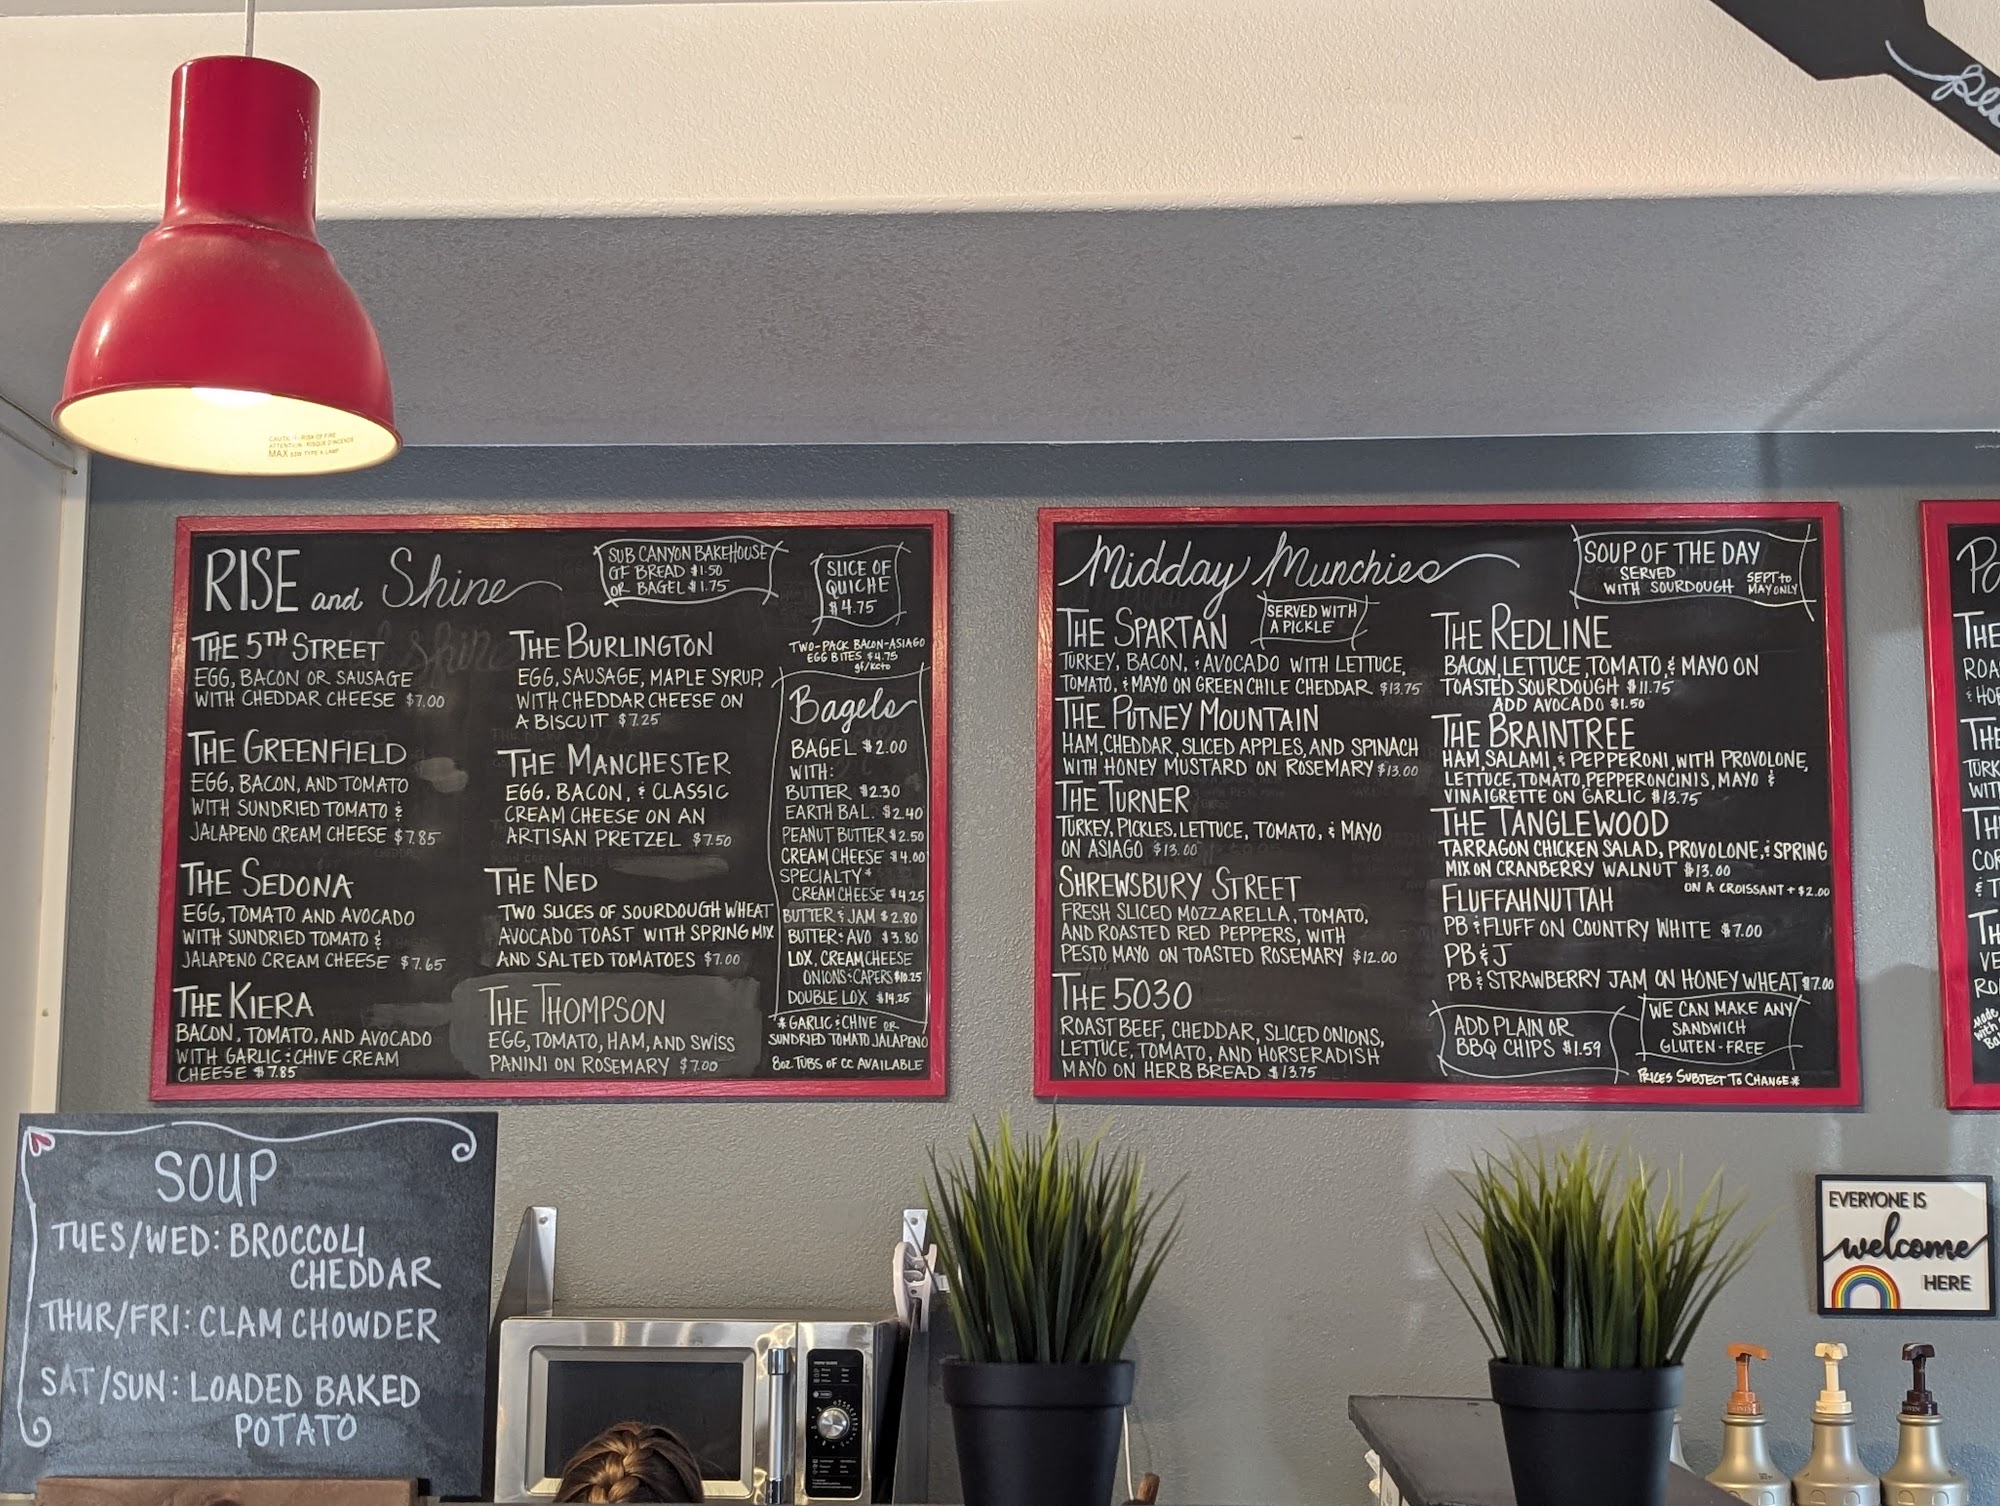 RISE and Shine
SUB CANYON BAKEHOUSE
GF BREAD $1.50
OR BAGEL $1.75
SLICE OF
QUICHE
$4.75
TWO-PACK BACON-ASIAGO
EGG BITES $4.75
gf/keto
THE 5TH STREET
EGG, BACON OR SAUSAGE
WITH CHEDDAR CHEESE $7.00
THE GREENFIELD
EGG, BACON, AND TOMATO
WITH SUNDRIED TOMATO &
JALAPENO CREAM CHEESE $7.85
THE SEDONA
EGG, TOMATO AND AVOCADO
WITH SUNDRIED TOMATO &
JALAPENO CREAM CHEESE $7.65
THE KIERA
BACON, TOMATO, AND AVOCADO
WITH GARLIC & CHIVE CREAM
CHEESE $7.85
THE BURLINGTON
EGG, SAUSAGE, MAPLE SYRUP,
WITH CHEDDAR CHEESE ON
A BISCUIT $7.25
THE MANCHESTER
EGG, BACON, & CLASSIC
CREAM CHEESE ON AN
ARTISAN PRETZEL $7.50
THE NED
TWO SLICES OF SOURDOUGH WHEAT
AVOCADO TOAST WITH SPRING MIX
AND SALTED TOMATOES $7.00
THE THOMPSON
EGG, TOMATO, HAM, AND SWISS
PANINI ON ROSEMARY $7.00
Bagels
BAGEL $2.00
WITH:
BUTTER $2.30
EARTH BAL. $2.40
PEANUT BUTTER $2.50
CREAM CHEESE $4.00
SPECIALTY*
CREAM CHEESE $4.25
BUTTER & JAM $2.80
BUTTER & AVO $3.80
LOX, CREAM CHEESE
ONIONS & CAPERS $10.25
DOUBLE LOX $14.25
* GARLIC & CHIVE OR
SUNDRIED TOMATO JALAPENO
8oz. TUBS OF CC AVAILABLE
Midday Munchies
SERVED WITH
A PICKLE
SOUP OF THE DAY
SERVED
WITH SOURDOUGH
SEPT to
MAY ONLY
THE SPARTAN
TURKEY, BACON, & AVOCADO WITH LETTUCE,
TOMATO, & MAYO ON GREEN CHILE CHEDDAR $13.75
THE PUTNEY MOUNTAIN
HAM, CHEDDAR, SLICED APPLES, AND SPINACH
WITH HONEY MUSTARD ON ROSEMARY $13.00
THE TURNER
TURKEY, PICKLES, LETTUCE, TOMATO, & MAYO
ON ASIAGO $13.00
SHREWSBURY STREET
FRESH SLICED MOZZARELLA, TOMATO,
AND ROASTED RED PEPPERS, WITH
PESTO MAYO ON TOASTED ROSEMARY $12.00
THE 5030
ROAST BEEF, CHEDDAR, SLICED ONIONS,
LETTUCE, TOMATO, AND HORSERADISH
MAYO ON HERB BREAD $13.75
THE REDLINE
BACON, LETTUCE, TOMATO, & MAYO ON
TOASTED SOURDOUGH $11.75
ADD AVOCADO $1.50
THE BRAINTREE
HAM, SALAMI, & PEPPERONI, WITH PROVOLONE,
LETTUCE, TOMATO, PEPPERONCINIS, MAYO &
VINAIGRETTE ON GARLIC $13.75
THE TANGLEWOOD
TARRAGON CHICKEN SALAD, PROVOLONE, & SPRING
MIX ON CRANBERRY WALNUT $13.00
ON A CROISSANT + $2.00
FLUFFAHNUTTAH
PB & FLUFF ON COUNTRY WHITE $7.00
PB & J
PB & STRAWBERRY JAM ON HONEY WHEAT $7.00
ADD PLAIN OR
BBQ CHIPS $1.59
WE CAN MAKE ANY
SANDWICH
GLUTEN-FREE
PRICES SUBJECT TO CHANGE*
SOUP
TUES/WED: BROCCOLI
CHEDDAR
THUR/FRI: CLAM CHOWDER
SAT/SUN: LOADED BAKED
POTATO
EVERYONE IS
welcome
HERE